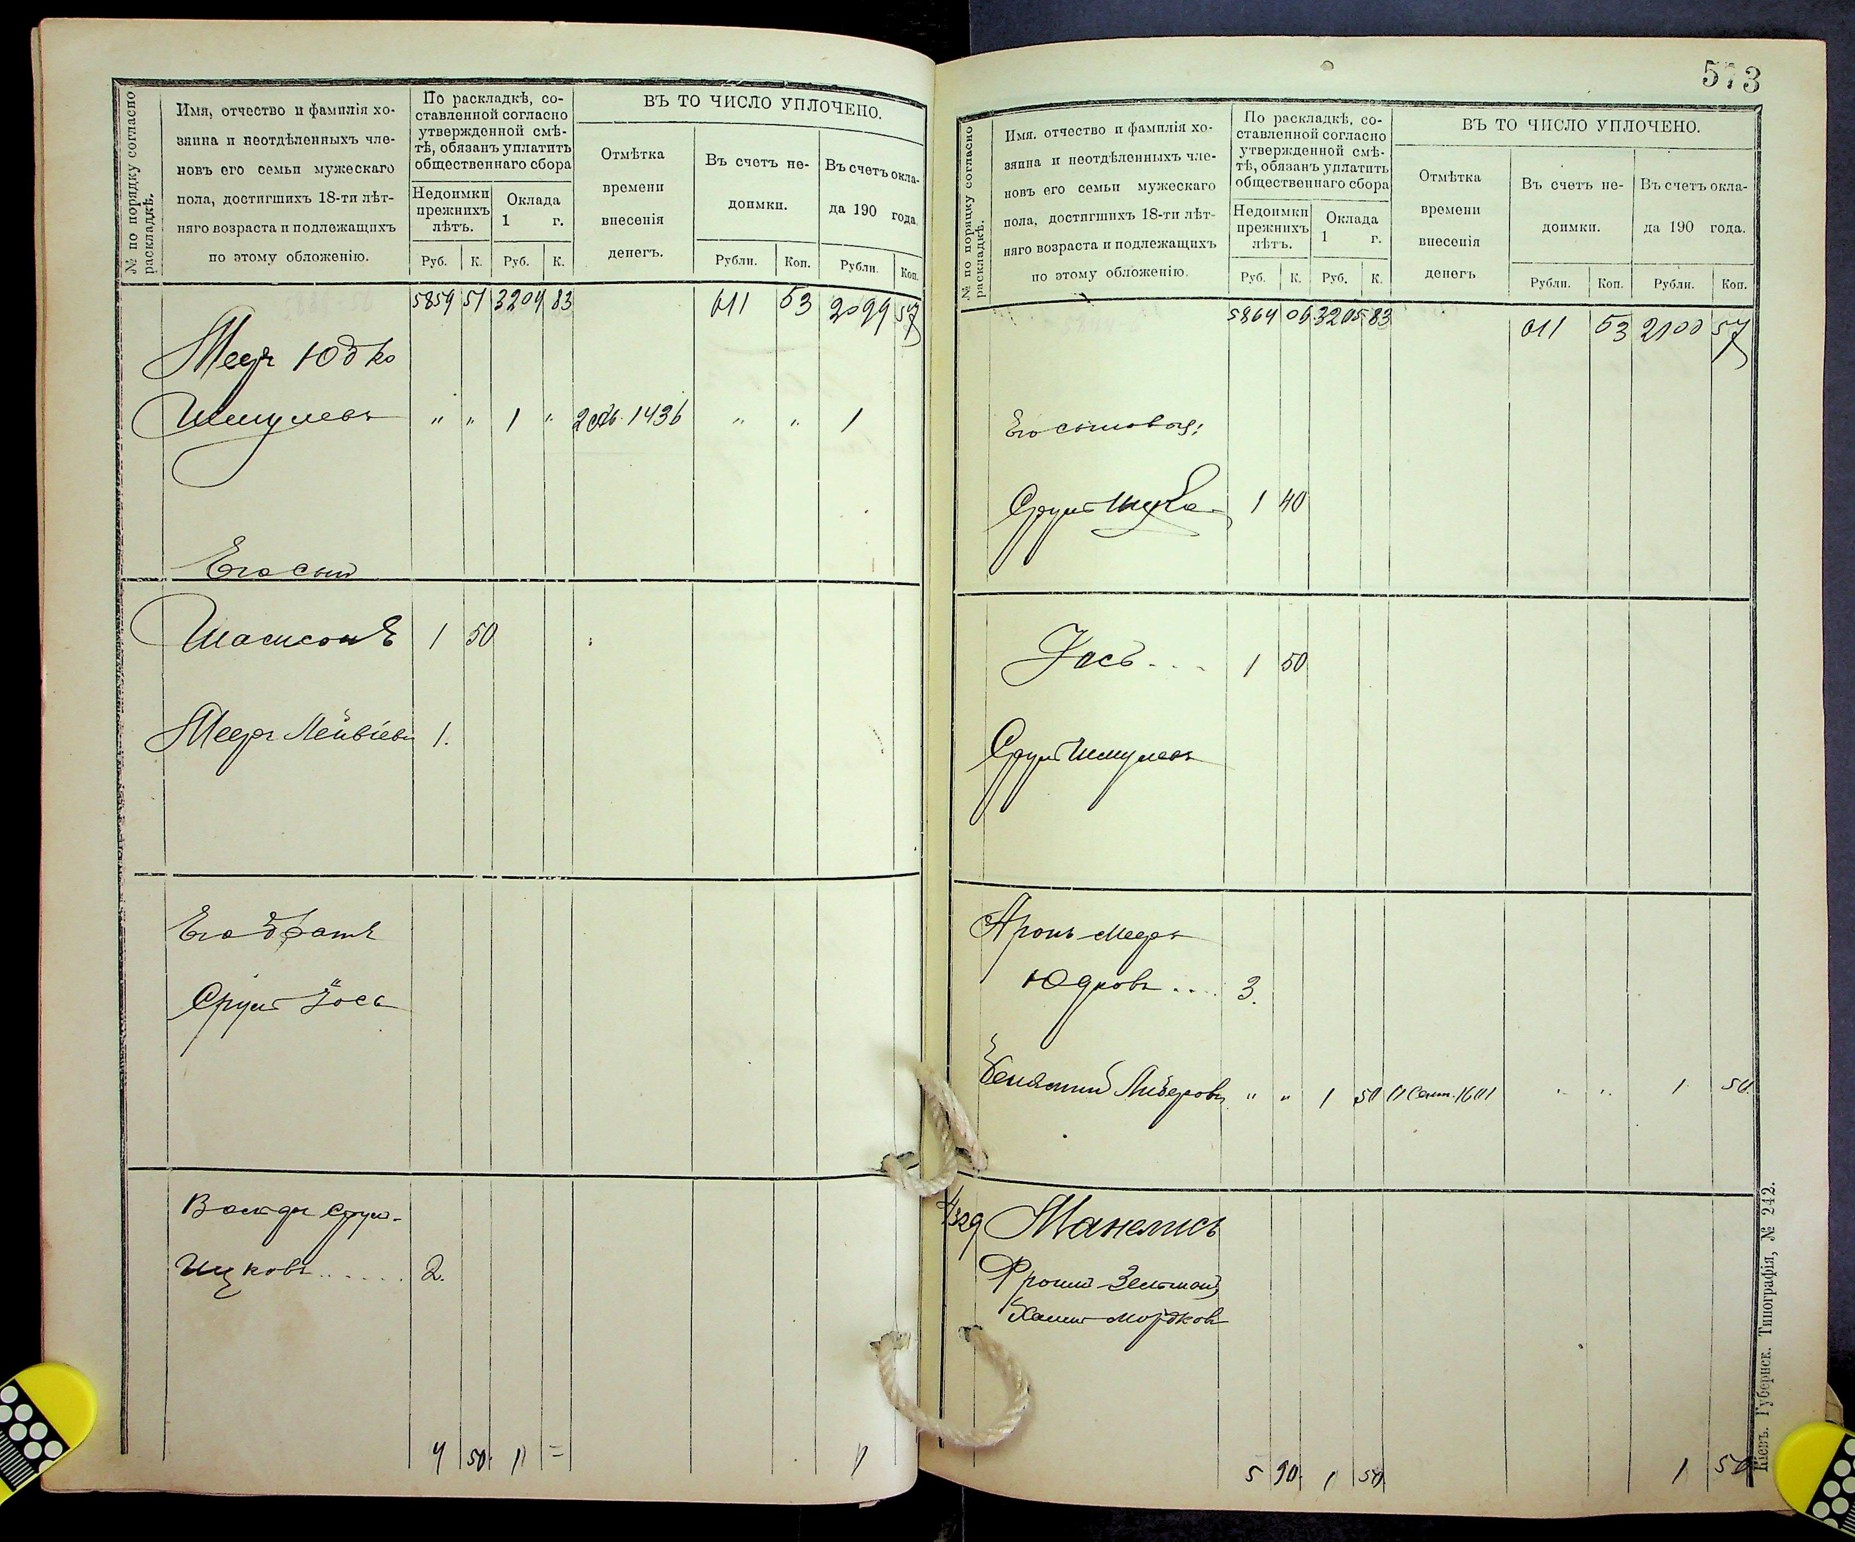 573
№ по порядку согласно раскладкѣ.
Имя, отчество и фамилія хо-
зяина и неотдѣленныхъ чле-
новъ его семьи мужескаго
пола, достигшихъ 18-ти лѣт-
няго возраста и подлежащихъ
по этому обложенію.
По раскладкѣ, со-
ставленной согласно
утвержденной смѣ-
тѣ, обязанъ уплатить
общественнаго сбора
Недоимки
прежнихъ
лѣтъ.
Оклада
1 г.
Руб. К. Руб. К.
ВЪ ТО ЧИСЛО УПЛОЧЕНО.
Отмѣтка
времени
внесенія
денегъ.
Въ счетъ не-
доимки.
Въ счетъ окла-
да 190 года.
Рубли. Коп. Рубли. Коп.
5859 51 3204 83 611 53 2099 57
Меер Юдко
Шмулевъ " " 1 " 1436 " " 1
Его сын
Шамсонъ 1 50
Меер Лейвіевъ 1.
Его братъ
Срул Іось
Волдр Срул-
Ицковъ...... 2.
4 50 1 = 1
№ по порядку согласно раскладкѣ.
Имя, отчество и фамилія хо-
зяина и неотдѣленныхъ чле-
новъ его семьи мужескаго
пола, достигшихъ 18-ти лѣт-
няго возраста и подлежащихъ
по этому обложенію.
По раскладкѣ, со-
ставленной согласно
утвержденной смѣ-
тѣ, обязанъ уплатить
общественнаго сбора
Недоимки
прежнихъ
лѣтъ.
Оклада
1 г.
Руб. К. Руб. К.
ВЪ ТО ЧИСЛО УПЛОЧЕНО.
Отмѣтка
времени
внесенія
денегъ
Въ счетъ не-
доимки.
Въ счетъ окла-
да 190 года.
Рубли. Коп. Рубли. Коп.
5864 06 3205 83 611 53 2100 57
Его сыновья:
Срул Ицко 1 40
Іось... 1 50
Срул Шмулевъ
Аронъ Меер
Юдковъ.... 3.
Беняминъ Лейзеровъ " " 1 50 11 Сент. 1601 " " 1 50
Манелисъ
Фроим Зельман
Хаим Мордков
5 90 1 50 1 50
Кіевъ. Губернск. Типографія, № 242.